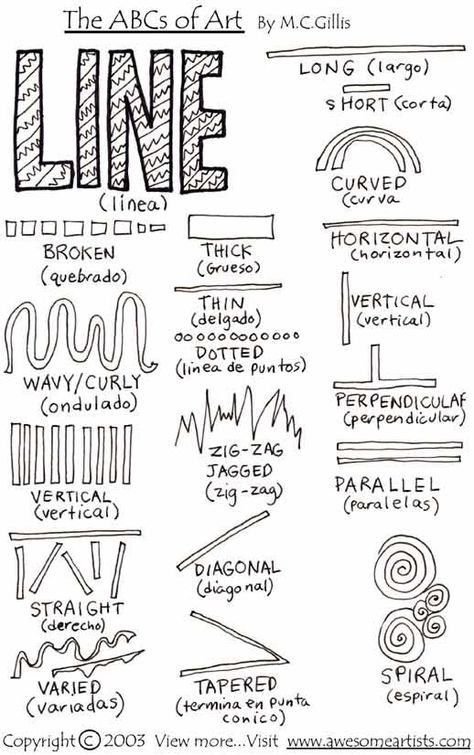 The ABCs of Art By M.C.Gillis
LINE
(linea)
BROKEN
(quebrado)
WAVY/CURLY
(ondulado)
VERTICAL
(vertical)
STRAIGHT
(derecho)
VARIED
(variadas)
THICK
(Grueso)
THIN
(delgado)
DOTTED
(linea de puntos)
ZIG-ZAG
JAGGED
(zig-zag)
DIAGONAL
(diagonal)
TAPERED
(termina en punta
conico)
LONG (largo)
SHORT (corta)
CURVED
(curva
HORIZONTAL
(horizontal)
VERTICAL
(vertical)
PERPENDICULAR
(perpendicular)
PARALLEL
(paralelas)
SPIRAL
(espiral)
Copyright © 2003 View more...Visit www.awesomeartists.com